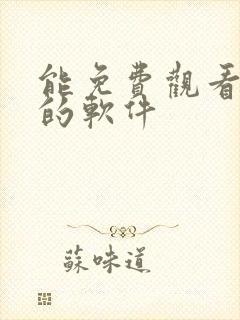 能免費觀看
的軟件
蘇味道